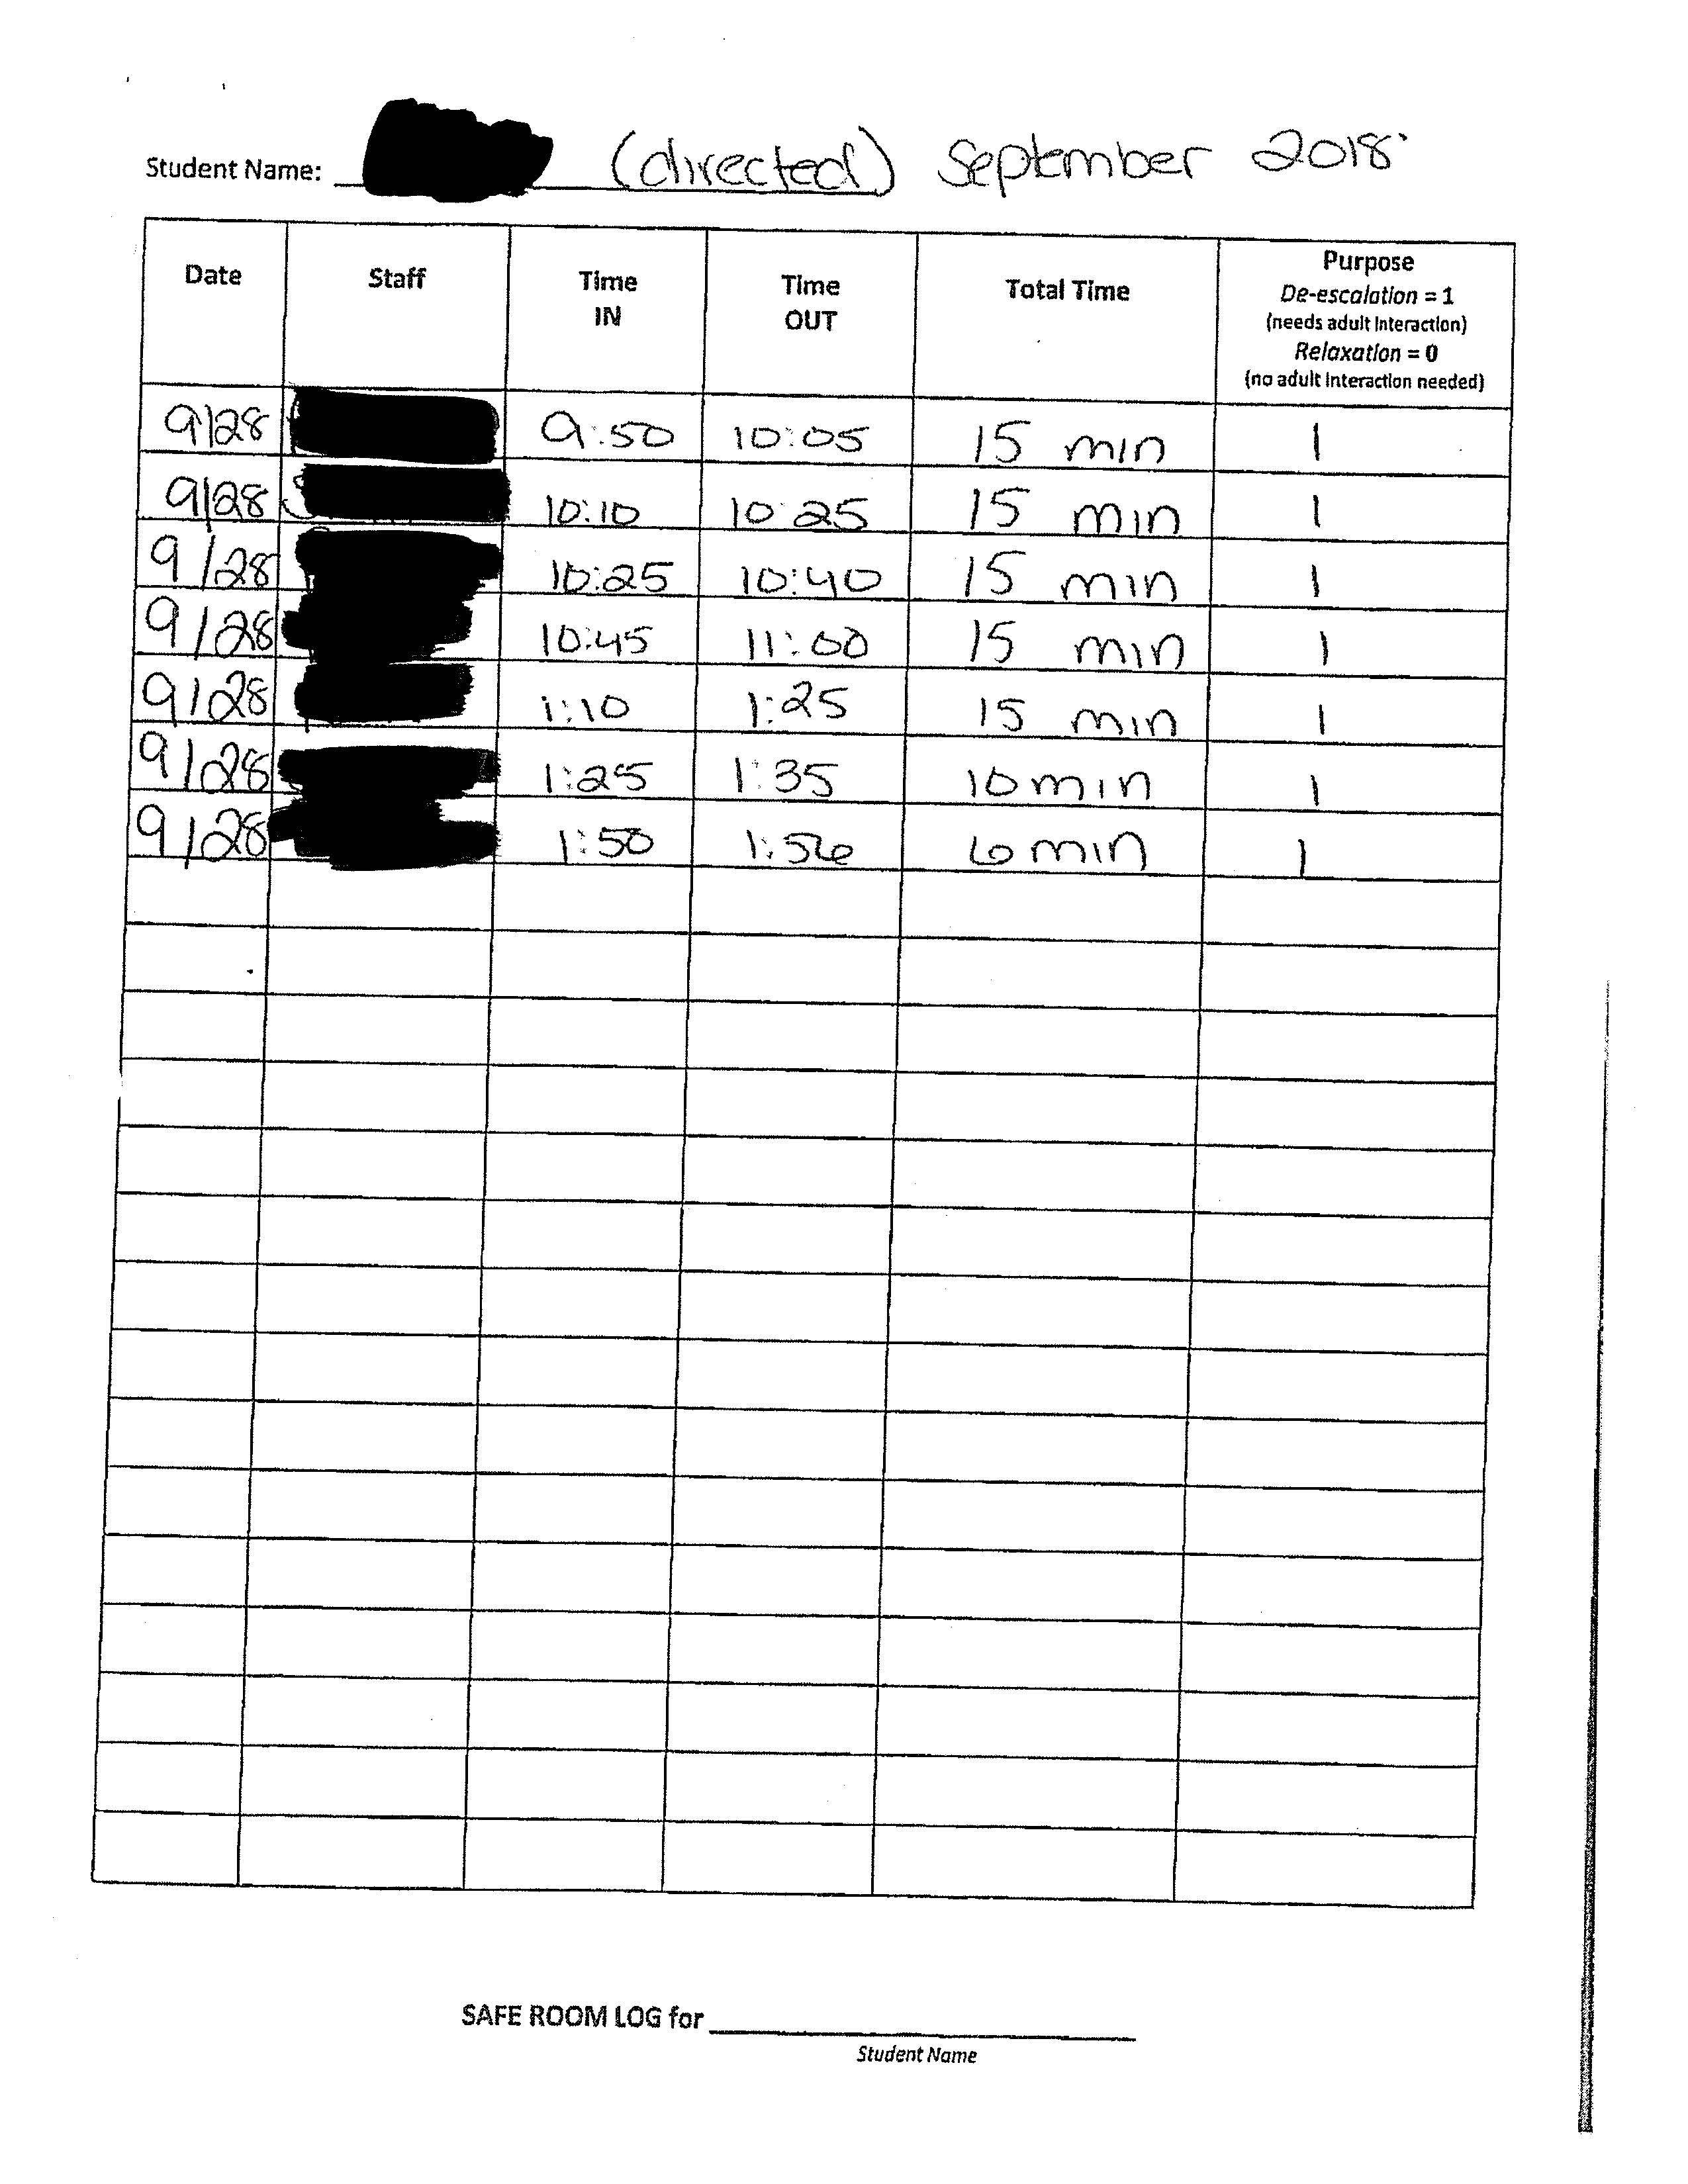 Student Name: (directed) September 2018
Date Staff Time IN Time OUT Total Time Purpose
De-escalation = 1
(needs adult interaction)
Relaxation = 0
(no adult interaction needed)
9/28 9:50 10:05 15 min 1
9/28 10:10 10:25 15 min 1
9/28 10:25 10:40 15 min 1
9/28 10:45 11:00 15 min 1
9/28 1:10 1:25 15 min 1
9/28 1:25 1:35 10 min 1
9/28 1:50 1:56 6 min 1
SAFE ROOM LOG for
Student Name